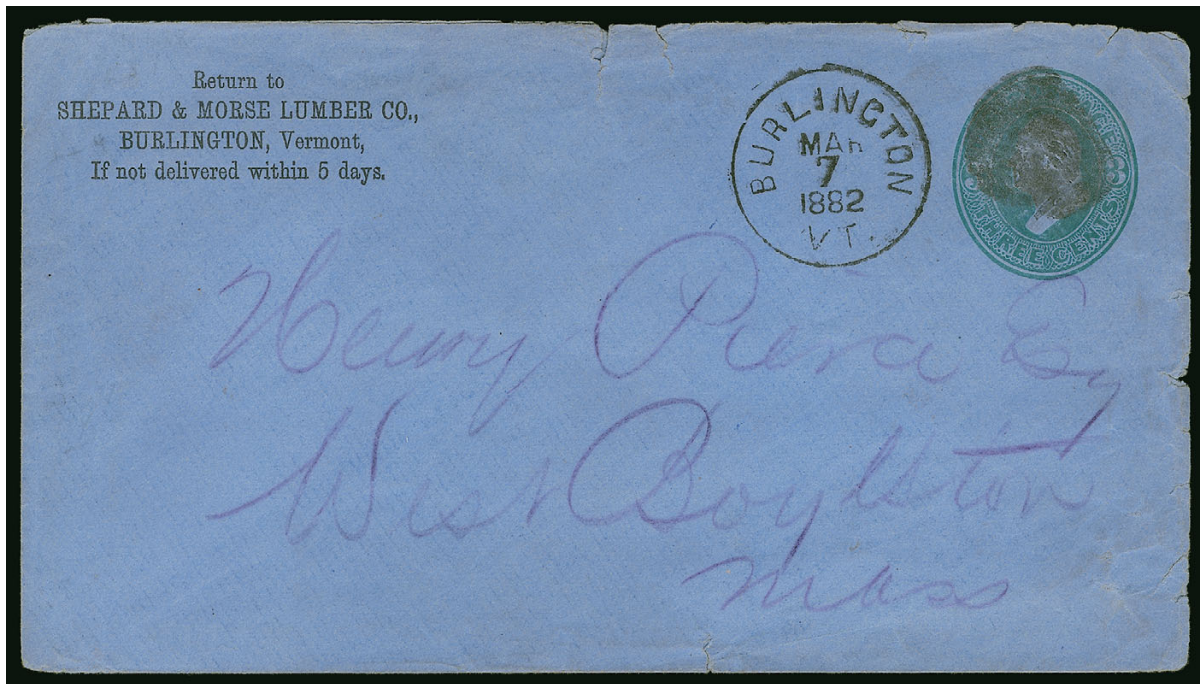 Return to
SHEPARD & MORSE LUMBER CO.,
BURLINGTON, Vermont,
If not delivered within 5 days.
BURLINGTON
MAR
7
1882
VT.
THREE CENTS
Henry Pierce Esq
West Boylston
Mass